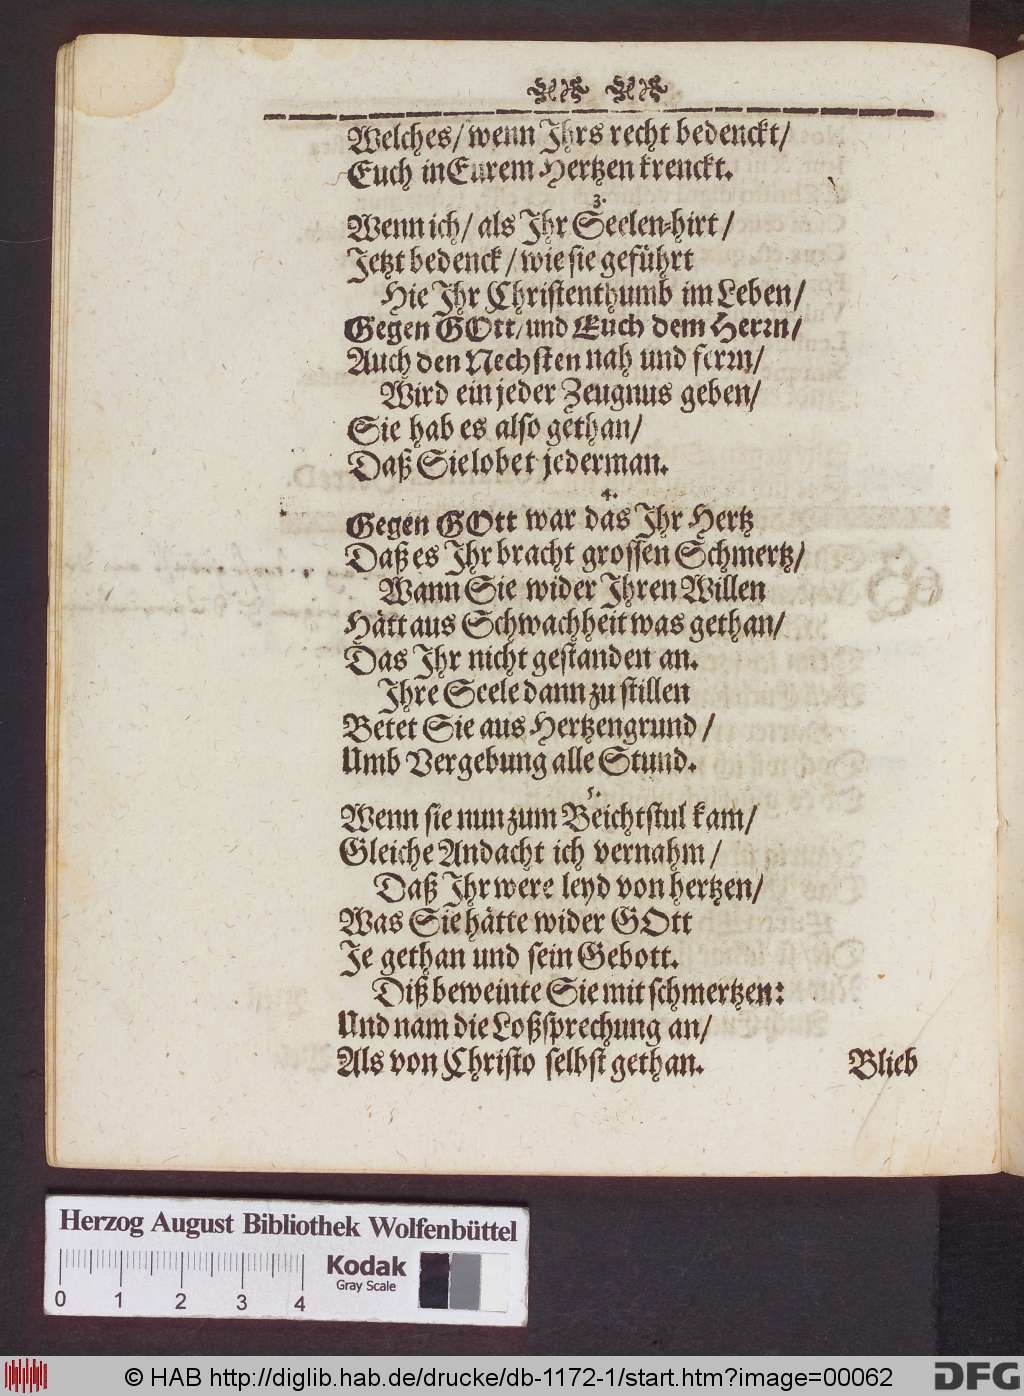 Welches/ wenn Ihrs recht bedenckt/
Euch in Eurem Hertzen krenckt.
3.
Wenn ich/ als Ihr Seelen-hirt/
Jetzt bedenck/ wie sie geführt
Hie Ihr Christenthumb im Leben/
Gegen GOtt/ und Euch dem Herrn/
Auch den Nechsten nah und ferrn/
Wird ein jeder Zeugnus geben/
Sie hab es also gethan/
Daß Sie lobet jederman.
4.
Gegen GOtt war das Ihr Hertz
Daß es Ihr bracht grossen Schmertz/
Wann Sie wider Ihren Willen
Hätt aus Schwachheit was gethan/
Das Ihr nicht gestanden an.
Ihre Seele dann zu stillen
Betet Sie aus Hertzengrund/
Umb Vergebung alle Stund.
5.
Wenn sie nun zum Beichtstul kam/
Gleiche Andacht ich vernahm/
Daß Ihr were leyd von hertzen/
Was Sie hätte wider GOtt
Je gethan und sein Gebott.
Diß beweinte Sie mit schmertzen:
Und nam die Loßsprechung an/
Als von Christo selbst gethan.
Blieb
Herzog August Bibliothek Wolfenbüttel
Kodak
Gray Scale
0 1 2 3 4
© HAB http://diglib.hab.de/drucke/db-1172-1/start.htm?image=00062
DFG